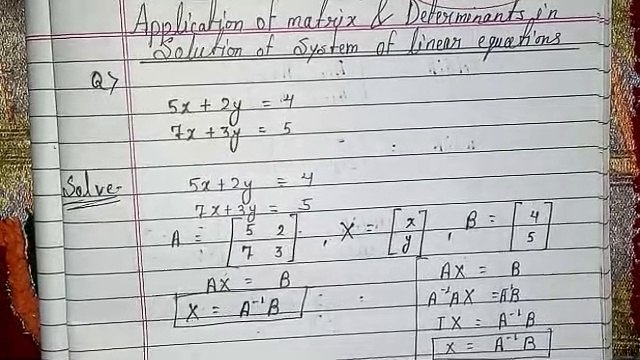 Application of matrix & Determinants in
Solution of System of linear equations
Q>
5x + 2y = 4
7x + 3y = 5
Solve-
5x + 2y = 4
7x + 3y = 5
A = [5 2 7 3], X = [x y], B = [4 5]
AX = B
X = A⁻¹B
AX = B
A⁻¹AX = A⁻¹B
IX = A⁻¹B
X = A⁻¹B